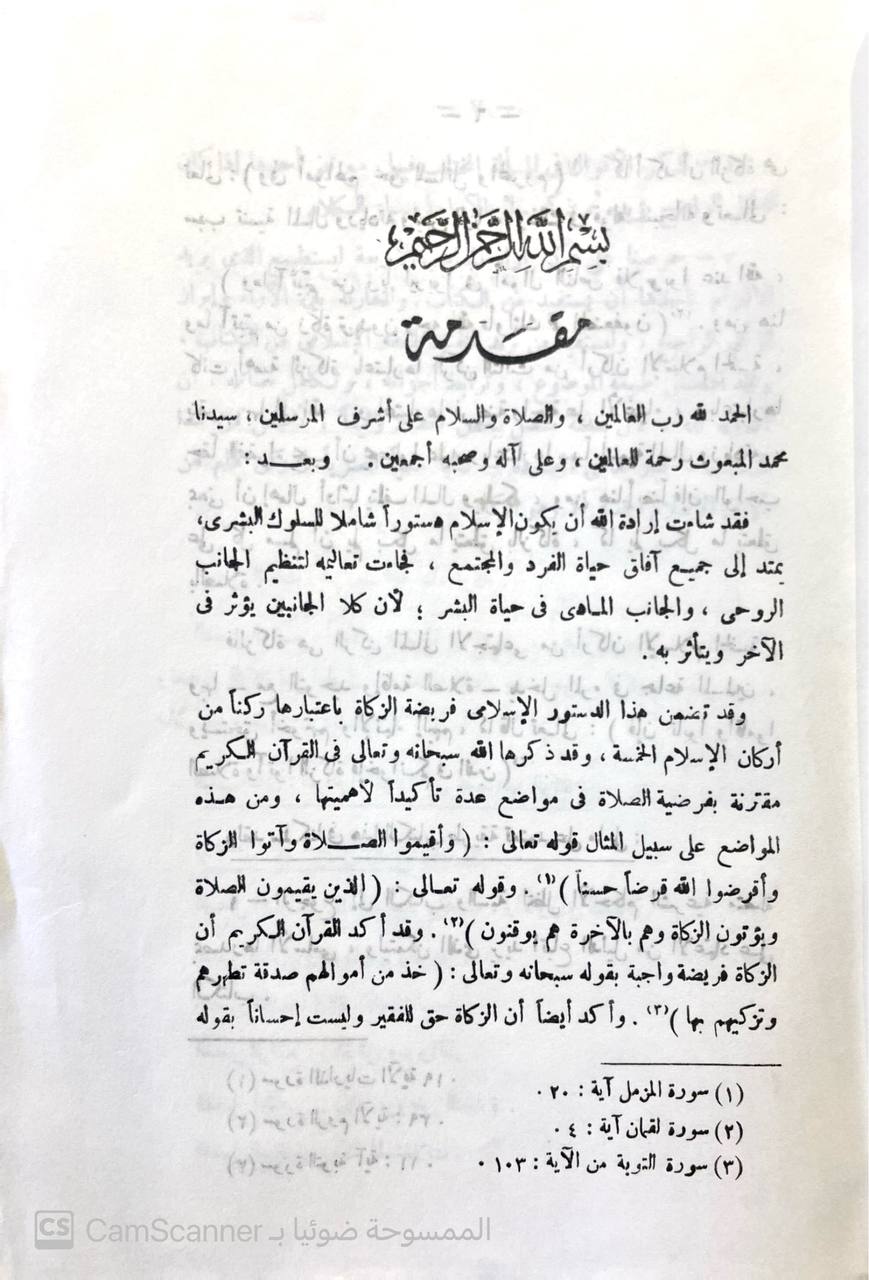 بسم الله الرحمن الرحيم
مقدمة
الحمد لله رب العالمين ، والصلاة والسلام على أشرف المرسلين ، سيدنا
محمد المبعوث رحمة للعالمين ، وعلى آله وصحبه أجمعين . وبعـــد :
فقد شاءت إرادة الله أن يكون الإسلام دستوراً شاملا للسلوك البشرى،
يمتد إلى جميع آفاق حياة الفرد والمجتمع ، فجاءت تعاليمه لتنظيم الجانب
الروحى ، والجانب المادى فى حياة البشر ؛ لأن كلا الجانبين يؤثر فى
الآخر ويتأثر به .
وقد تضمن هذا الدستور الإسلامى فريضة الزكاة باعتبارها ركناً من
أركان الإسلام الخمسة ، وقد ذكرها الله سبحانه وتعالى فى القرآن الكريم
مقترنة بفرضية الصلاة فى مواضع عدة تأكيداً لأهميتها ، ومن هـذه
المواضع على سبيل المثال قوله تعالى : ( وأقيموا الصـــلاة وآتوا الزكاة
وأقرضوا الله قرضاً حسناً )(١) . وقوله تعـالى : ( الذين يقيمون الصلاة
ويؤتون الزكاة وهم بالآخرة هم يوقنون )(٢) . وقد أكد القرآن الكريم أن
الزكاة فريضة واجبة بقوله سبحانه وتعالى : ( خذ من أموالهم صدقة تطهرهم
وتزكيهم بها )(٣) . وأكد أيضاً أن الزكاة حق للفقير وليست إحساناً بقوله
(١) سورة المزمل آية : ٢٠ .
(٢) سورة لقمان آية : ٤ .
(٣) سورة التوبة من الآية : ١٠٣ .
CS الممسوحة ضوئيا بـ CamScanner